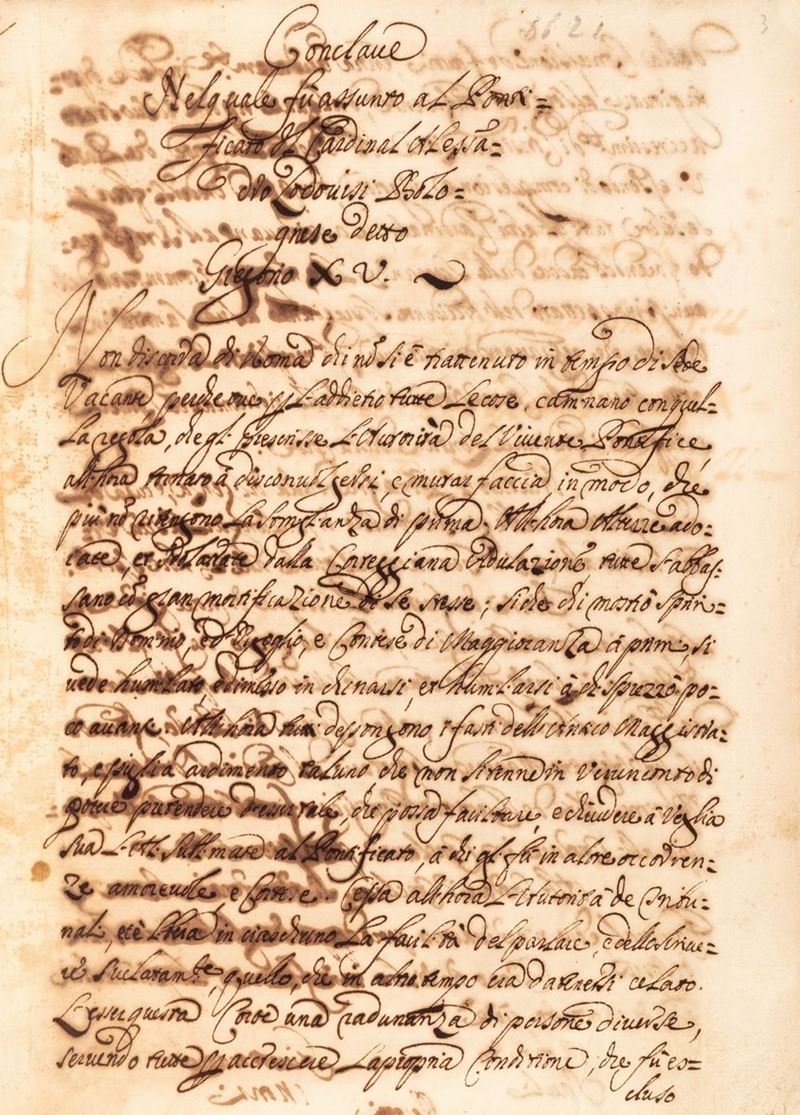 1621
3
Conclave
Nel quale fù assunto al Ponti=
ficato il Cardinal Alessã=
dro Lodovisi Bolo=
gnese detto
Gregorio XV.
Non discorda di Roma chi nõ si è trattenuto in tempo di Sede
Vacante, perche ove p l'addietro tutte le cose, caminano con quel=
la regola, che gl' prescrisse l'Autorità del Vivente Pontefice
all'hora tornato à disconvolgersi, e mutar faccia in modo, che
più nõ ritengono la somstanza di prima. All'hora Alture ado=
rate, et dalla Correggiana Adulazione, tutte s'abbas=
sano cõ gran mortificazione di se stesse; si che chi mostrò Spiri=
to di Dominio, ed Orgoglio, e Contese di Maggioranza à prim, si
vede humiliato, e dimesso in chinarsi, et humiliarsi à chi sprezzò po=
co avante. All'hora tutti depongono i fasti dell' Magistra=
to, e piglia ardimento taluno che non si tenne in Verun conto di
poter pretendere d'esser tale, che possa facilitare, e chiudere à Voglia
sua l' sullimare al Pontificato, à chi gl' fù in alore occorren=
ze amorevole e Cortese. Cessa all'hora l'Autorità de Tribu=
nali, et è libera in ciascheduno la facilità del parlare, e dello scrive=
re dichiaratamte, quello, che in altro tempo era da tenersi celato.
L'esser questa Corte una radunanza di persone diverse,
servendo tutte p accrescere la propria Conditione, che fù es=
cluso